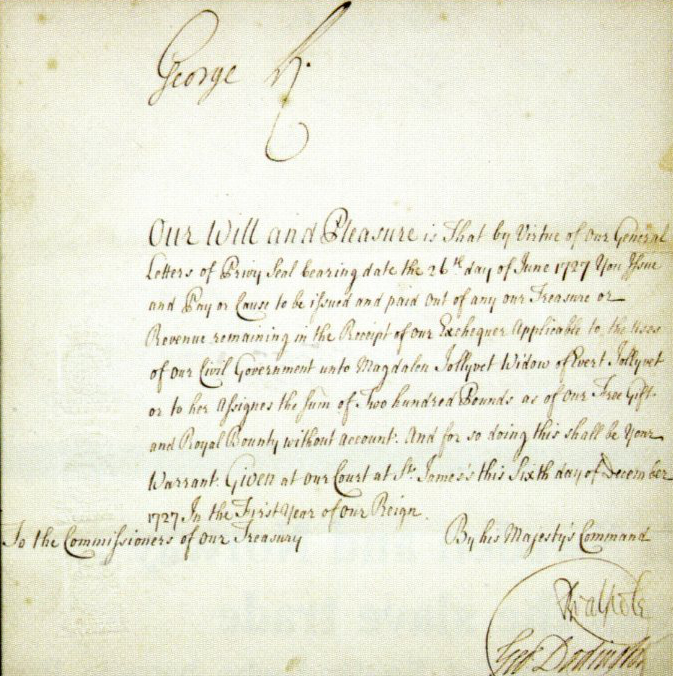 George R.
Our Will and Pleasure is That by Virtue of Our General
Letters of Privy Seal bearing date the 26th day of June 1727 You Issue
and Pay or Cause to be issued and paid out of any our Treasure or
Revenue remaining in the Receipt of our Exchequer Applicable to the Uses
of our Civil Government unto Magdalen Jollyvet Widow of Evert Jollyvet
or to her Assignes the sum of Two hundred Pounds as of Our Free Gift
and Royal Bounty without account: And for so doing this shall be Your
Warrant. Given at our Court at St. James's this Sixth day of December
1727 In the First Year of our Reign.
To the Commissioners of our Treasury
By his Majesty's Command
RWalpole
Geo Dodington